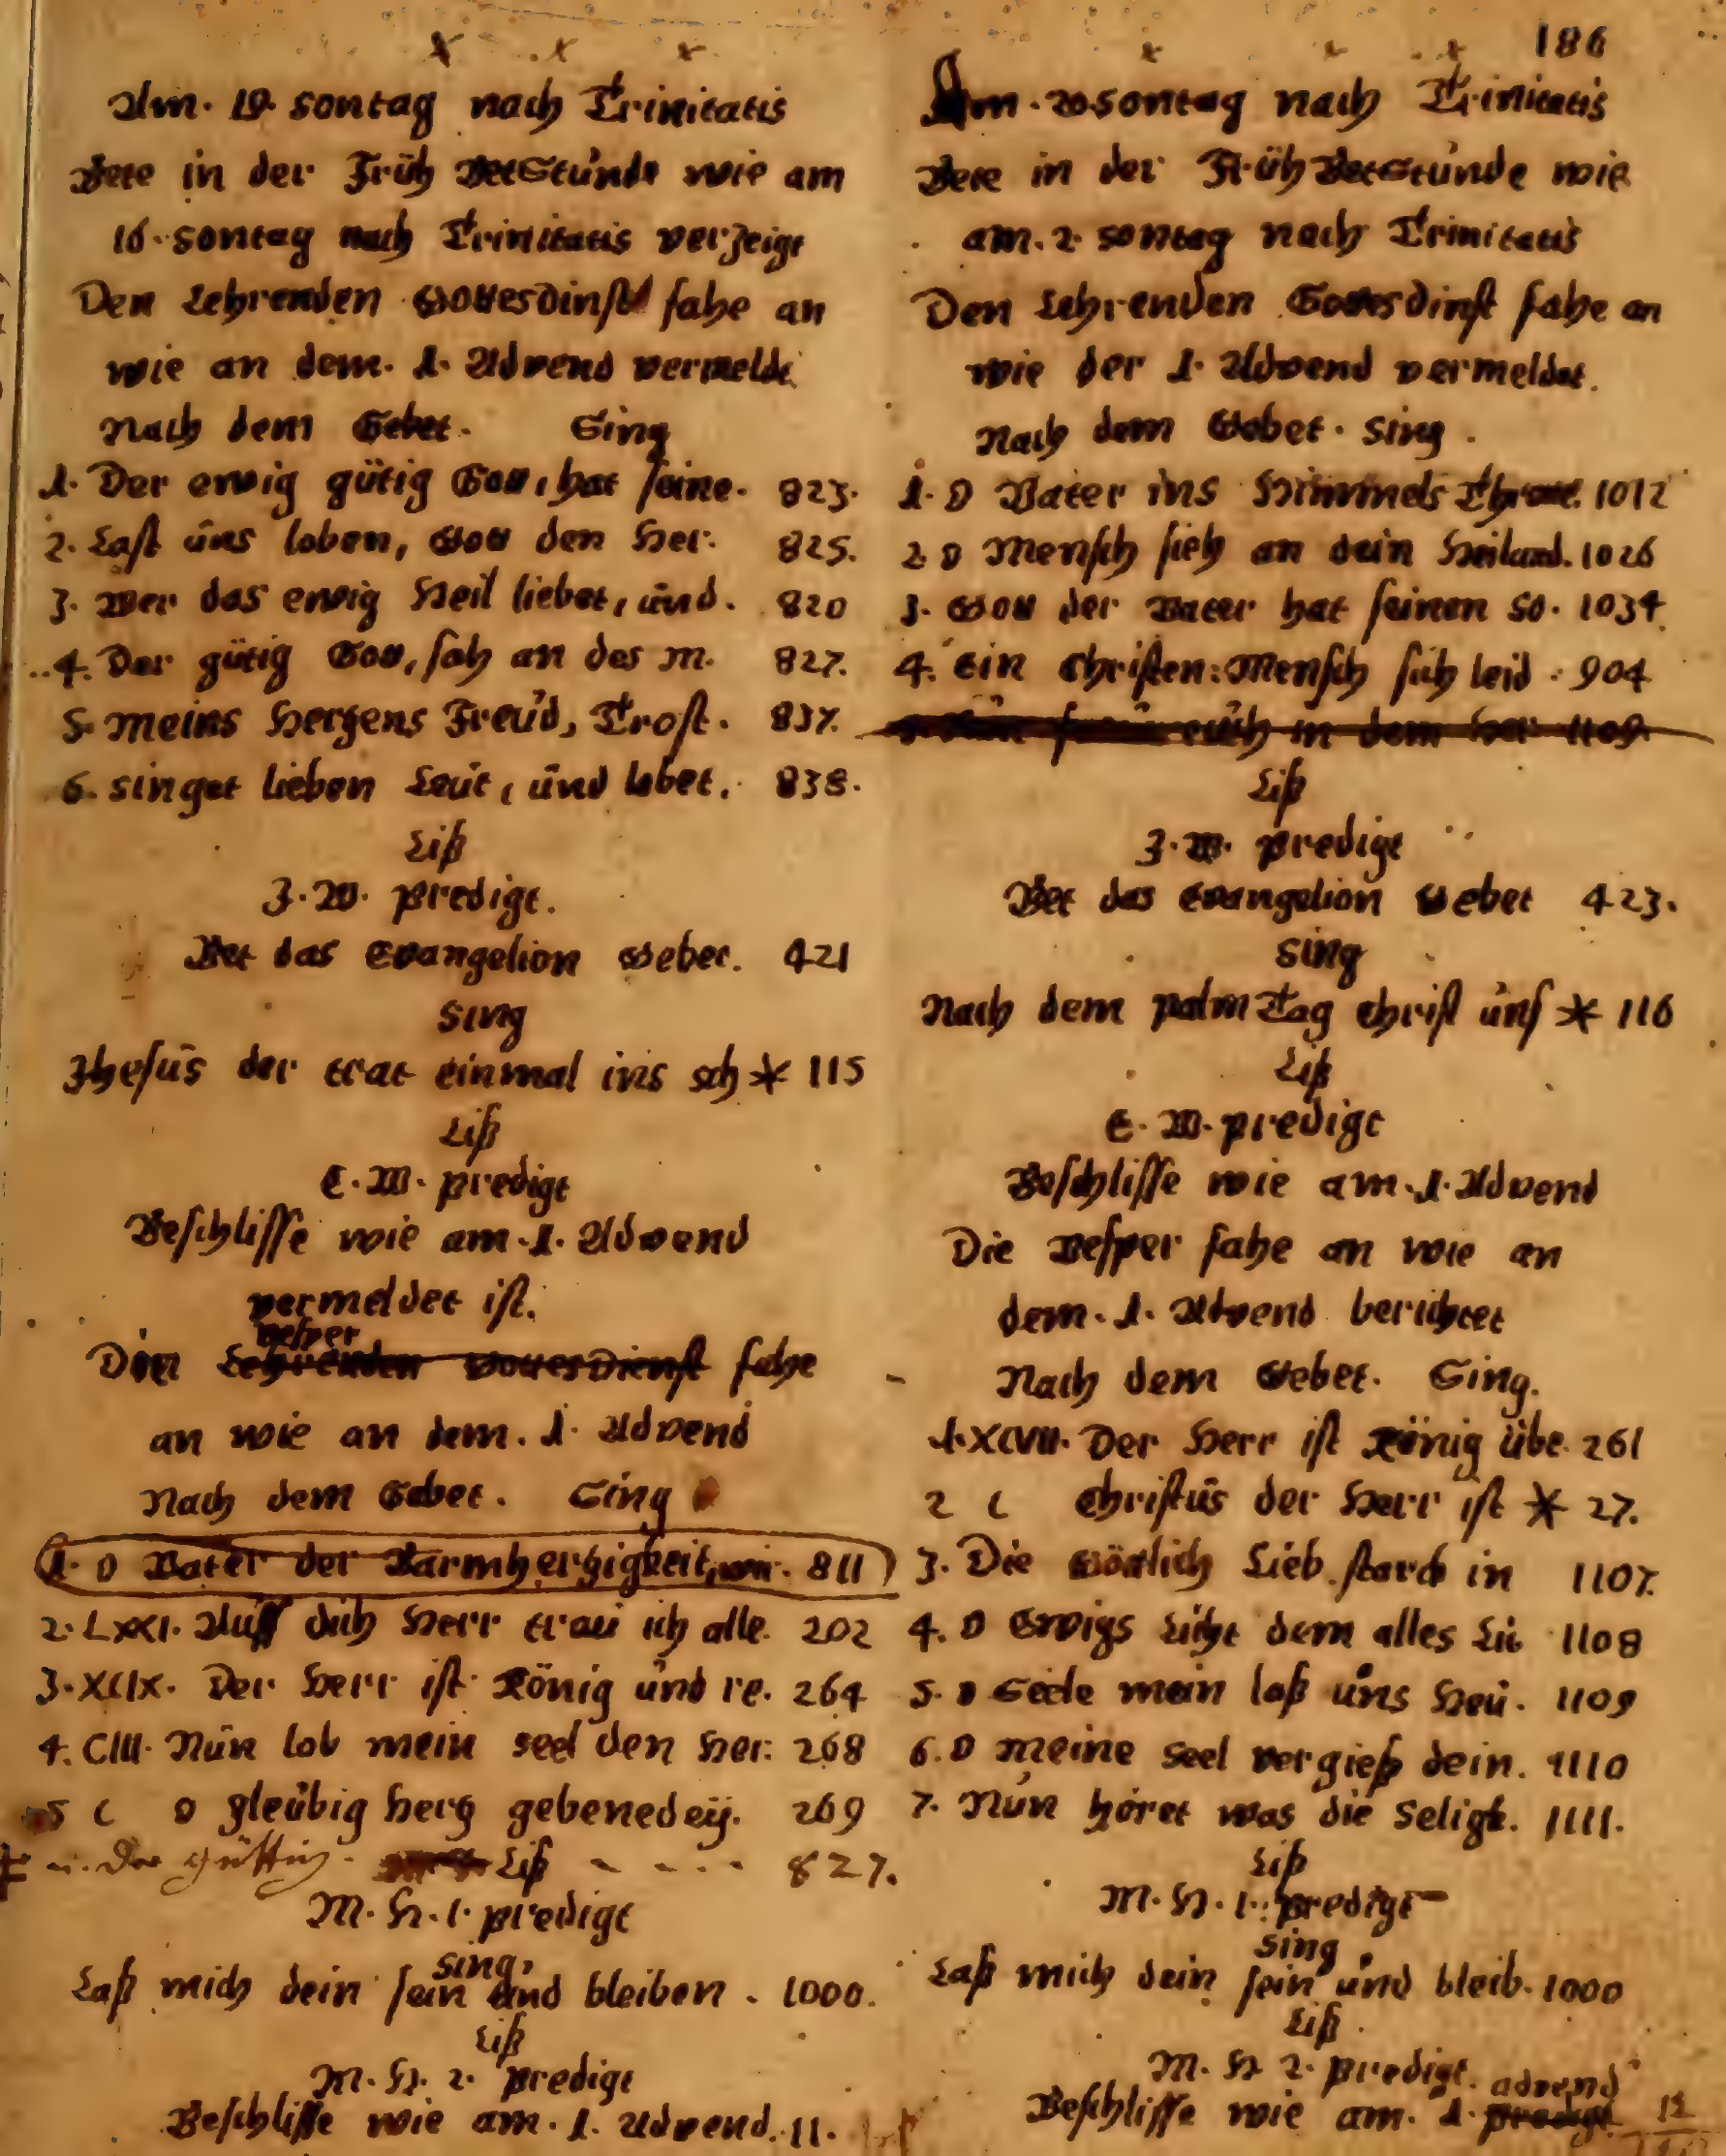 Am. 19. Sontag nach Trinitatis
Bete in der Früh BetStunde wie am
16. Sontag nach Trinitatis verzeigt
Den Lehrenden Gottesdinst fahe an
wie an dem. 1. Advend vermeldt
Nach dem Gebet. Sing
1. Der ewig gütig Gott, hat seine. 823.
2. Last uns loben, Gott den Her. 825.
3. Wer das ewig Heil liebet, und. 820
4. Der gütig Gott, sah an des m. 827.
5. Meins Hertzens Freud, Trost. 837.
6. Singet lieben Leut, und lobet. 838.
Liß
J. W. predigt.
Bet das Evangelion Gebet. 421
Sing
Jhesus der trat einmal ins sch * 115
Liß
E. W. predigt
Beschlisse wie am. 1. Advend
vermeldet ist.
Vesper
Die Lehrenden GottesDienst fahe
an wie an dem. 1. Advend
Nach dem Gebet. Sing
1. O Vater der Barmhertzigkeit, wir. 811
2. LXXI. Auff dich Herr trau ich alle. 202
3. XCIX. Der Herr ist König und re. 264
4. CIII. Nun lob mein seel den Her: 268
5 C O gleubig Hertz gebenedeij. 269
Der güttig. Liß - - - - 827.
M. H. 1. predigt
Sing,
Laß mich dein sein und bleiben. 1000.
Liß
M. H. 2. predigt
Beschlisse wie am. 1. Advend. 11.
186
Am. 20. Sontag nach Trinitatis
Bete in der Früh BetStunde wie
am. 2. Sontag nach Trinitatis
Den Lehrenden Gottesdinst fahe an
wie der 1. Advend vermeldet.
Nach dem Gebet. Sing.
1. O Vater ins Himmels Throne. 1012
2 O Mensch sieh an dein Heiland. 1026
3. Gott der Vater hat seinen So. 1034
4. Ein Christen: Mensch sich leid. 904
euch in dem her 1109
Liß
J. W. predigt
Bet das Evangelion Gebet 423.
Sing
Nach dem palm Tag Christ uns * 116
Liß
E. W. predigt
Beschlisse wie am. 1. Advend
Die Vesper fahe an wie an
dem. 1. Advend berichtet
Nach dem Gebet. Sing.
1. XCVII. Der Herr ist König übe. 261
2 C Christus der Herr ist * 27.
3. Die Göttlich Lieb starck in 1107.
4. O Ewigs Licht dem alles Lic 1108
5. O Seele mein laß uns Heu. 1109
6. O meine Seel vergieß dein. 1110
7. Nun höret was die Seligk. 1111.
Liß
M. H. 1. predigt
Sing,
Laß mich dein sein und bleib. 1000
Liß
M. H 2. predigt.
advend
Beschlisse wie am. 1. predigt 12